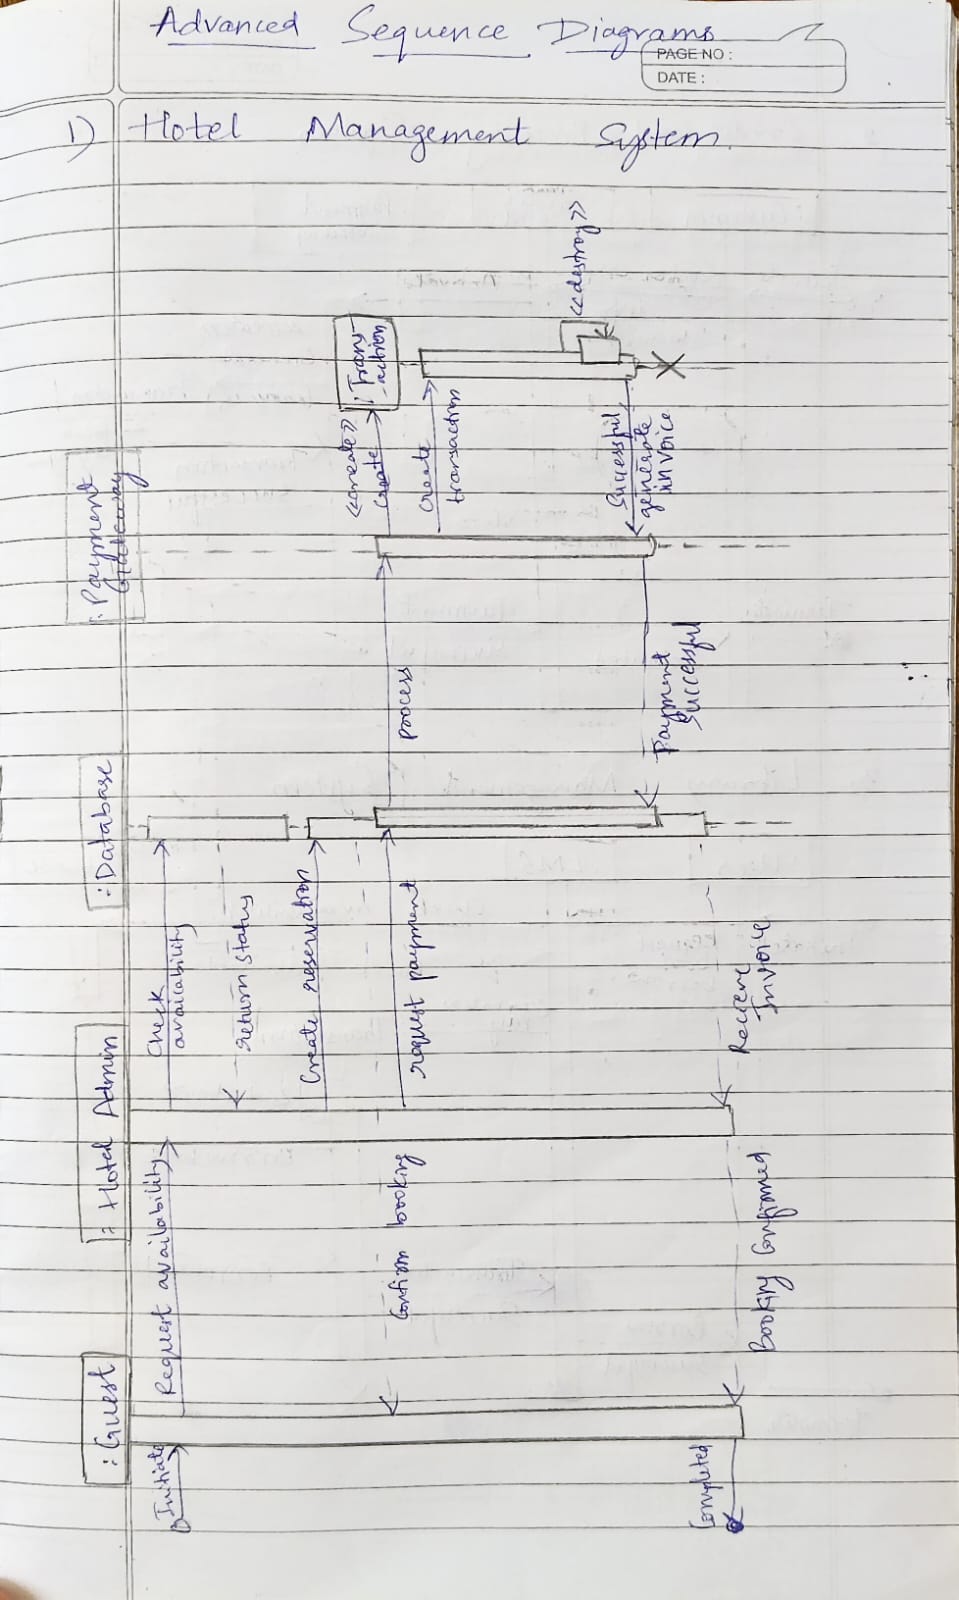 Advanced Sequence Diagrams
PAGE NO :
DATE :
1) Hotel Management System.
: Guest
: Hotel Admin
: Database
: Payment
Gateway
: Trans-
-action
Initiate
Request availability
Check
availability
Return status
Create reservation
Confirm booking
request payment
process
<<create>>
Create
Create
transaction
<<destroy>>
Successful
generate
invoice
Payment
Successful
Recieve
Invoice
Booking Confirmed
Completed